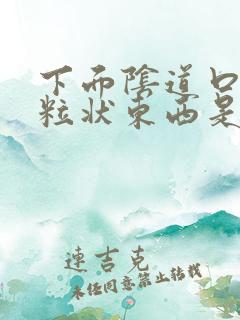 下面陰道口
粒状東西是
連吉克
未经同意禁止转载